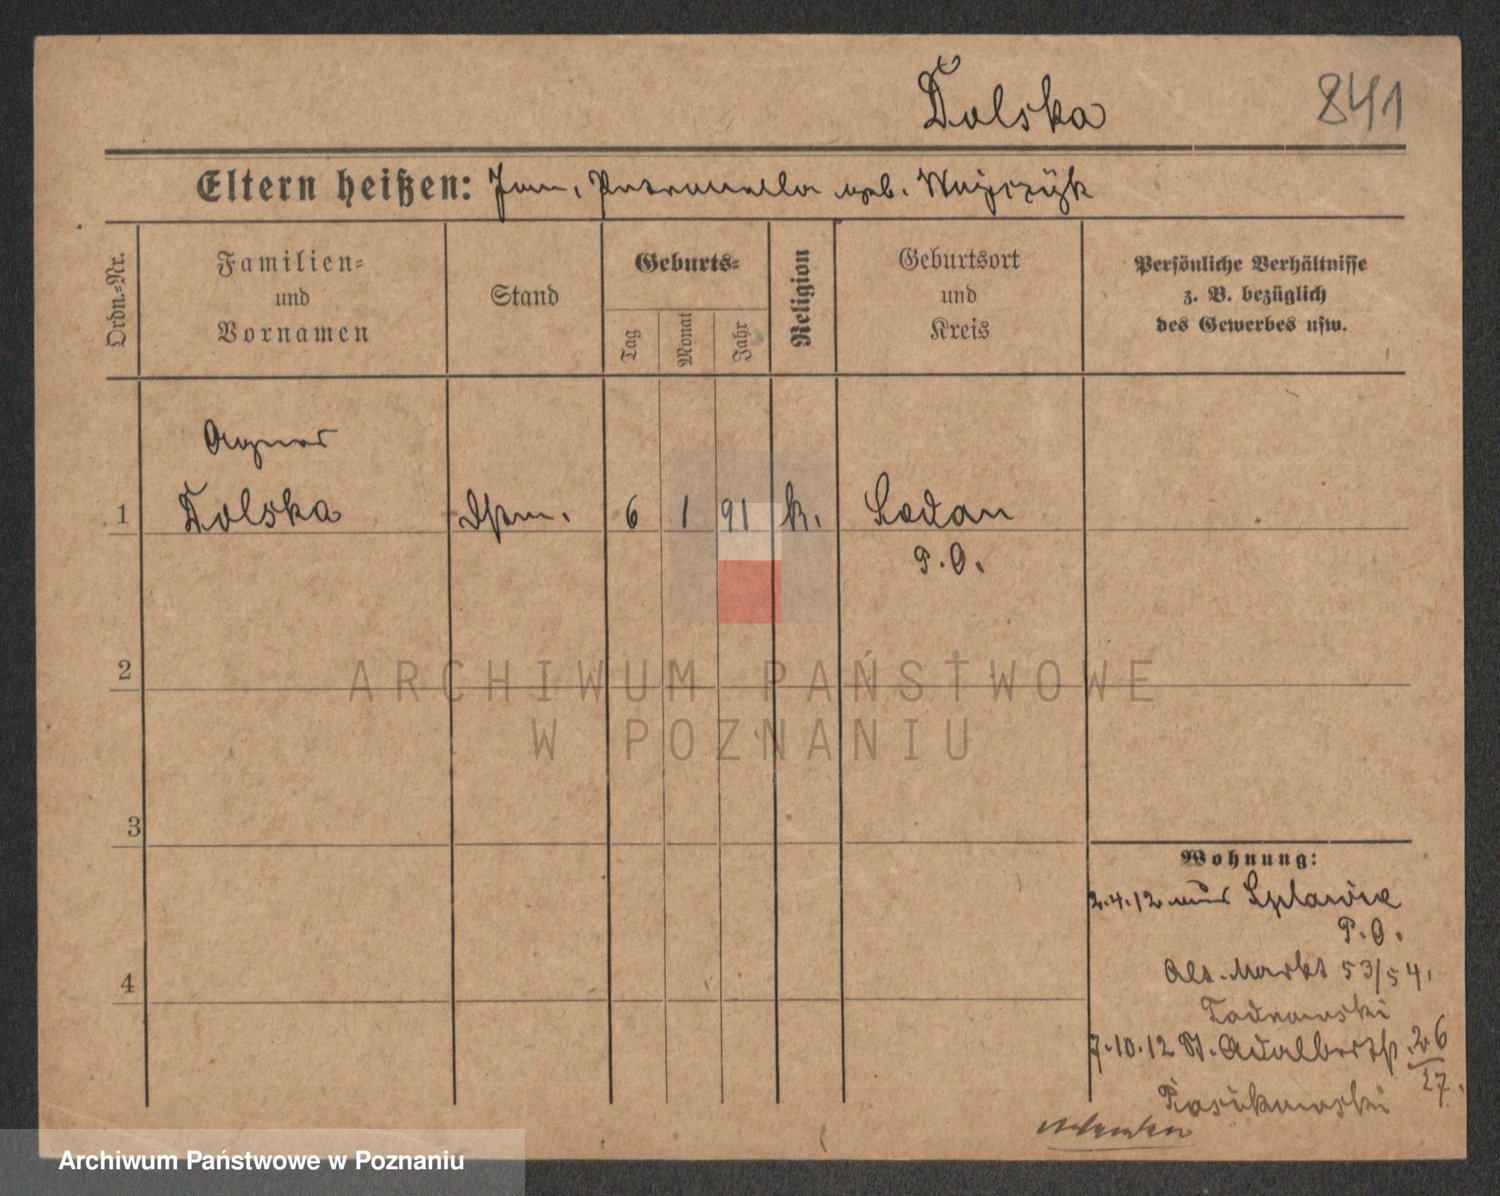 Tolska 841
Eltern heißen: Jan, Petronella geb. Wojczyk
Ordn.-Nr.
Familien-
und
Vornamen
Stand
Geburts-
Tag
Monat
Jahr
Religion
Geburtsort
und
Kreis
Persönliche Verhältnisse
z. B. bezüglich
des Gewerbes usw.
Agnes
1 Tolska 6 1 91 k. Lodan
P.O.
2
ARCHIWUM PAŃSTWOWE
W POZNANIU
3
Wohnung:
2.4.12 aus Splawie
P.O.
Alt. Markt 53/54.
4
7.10.12 St. Adalbertst. 26/27.
Archiwum Państwowe w Poznaniu